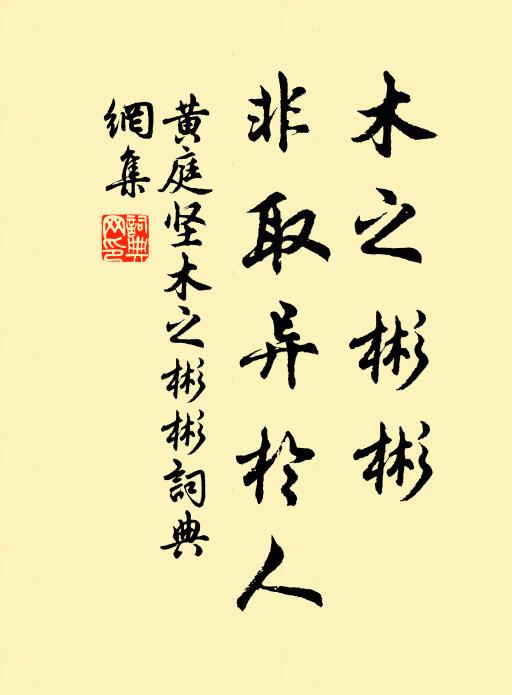 木之彬彬
非取异於人
黄庭坚木之彬彬詞典
網集
詞典網印